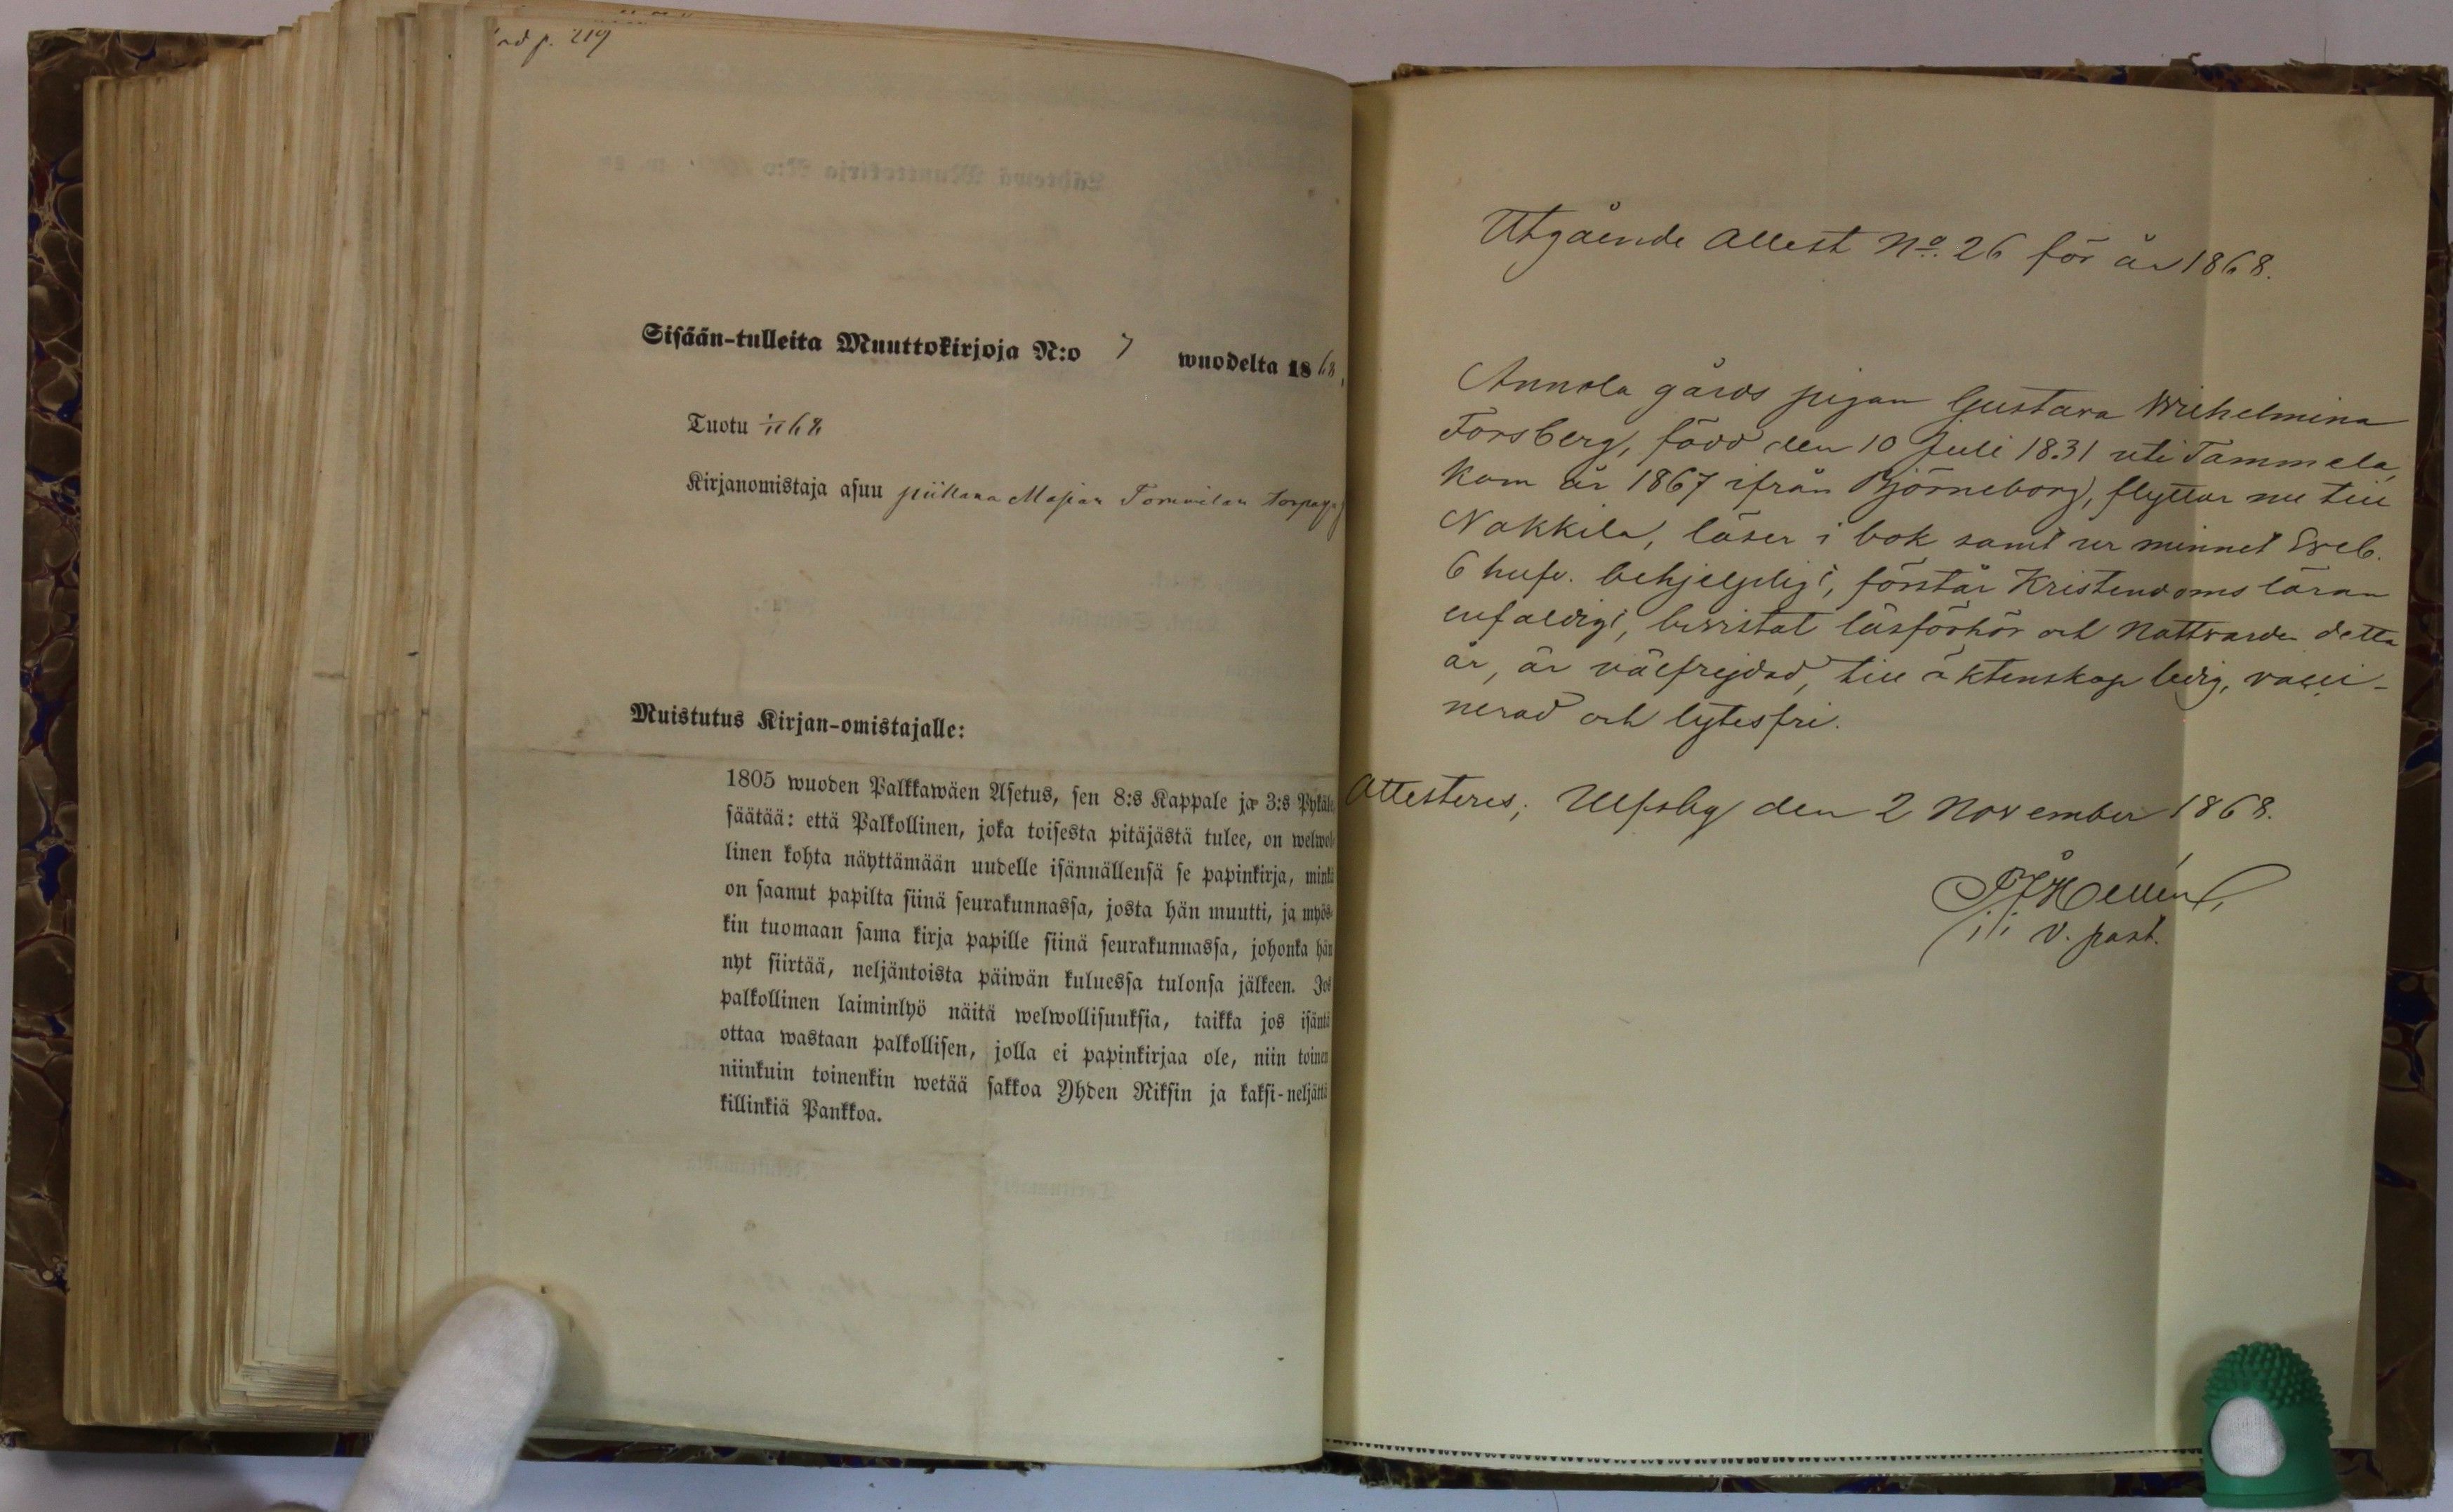 p. 219
Sisään-tulleita Muuttokirjoja N:o 7 wuodelta 1868,
Tuotu 1/11 68
Kirjanomistaja asuu piikana Torvilan
Muistutus Kirjan-omistajalle:
1805 wuoden Palkkawäen Asetus, sen 8:s Kappale ja 3:s Pykälä
säätää: että Palkollinen, joka toisesta pitäjästä tulee, on welwol-
linen kohta näyttämään uudelle isännällensä se papinkirja, minkä
on saanut papilta siinä seurakunnassa, josta hän muutti, ja myös-
kin tuomaan sama kirja papille siinä seurakunnassa, johonka hän
nyt siirtää, neljäntoista päiwän kuluessa tulonsa jälkeen. Jos
palkollinen laiminlyö näitä welwollisuuksia, taikka jos isäntä
ottaa wastaan palkollisen, jolla ei papinkirjaa ole, niin toinen
niinkuin toinenkin wetää sakkoa Yhden Riksin ja kaksi-neljättä
killinkiä Pankkoa.
Utgående Attest No. 26 för år 1868.
Annola gårds pigan Gustava Wilhelmina
Forsberg, född den 10 Juli 1831 uti Tammela,
kom år 1867 ifrån Björneborg, flyttar nu till
Nakkila, läser i bok samt ur minnet Sveb.
6 hufv. behjelpligt, förstår Kristendoms läran
enfaldigt, bevistat läsförhör och Nattvarden detta
år, är välfrejdad, till äktenskap ledig, vacci-
nerad och lytesfri.
Attesteres, Ulfsby den 2 November 1868.
Hellén,
v. past.